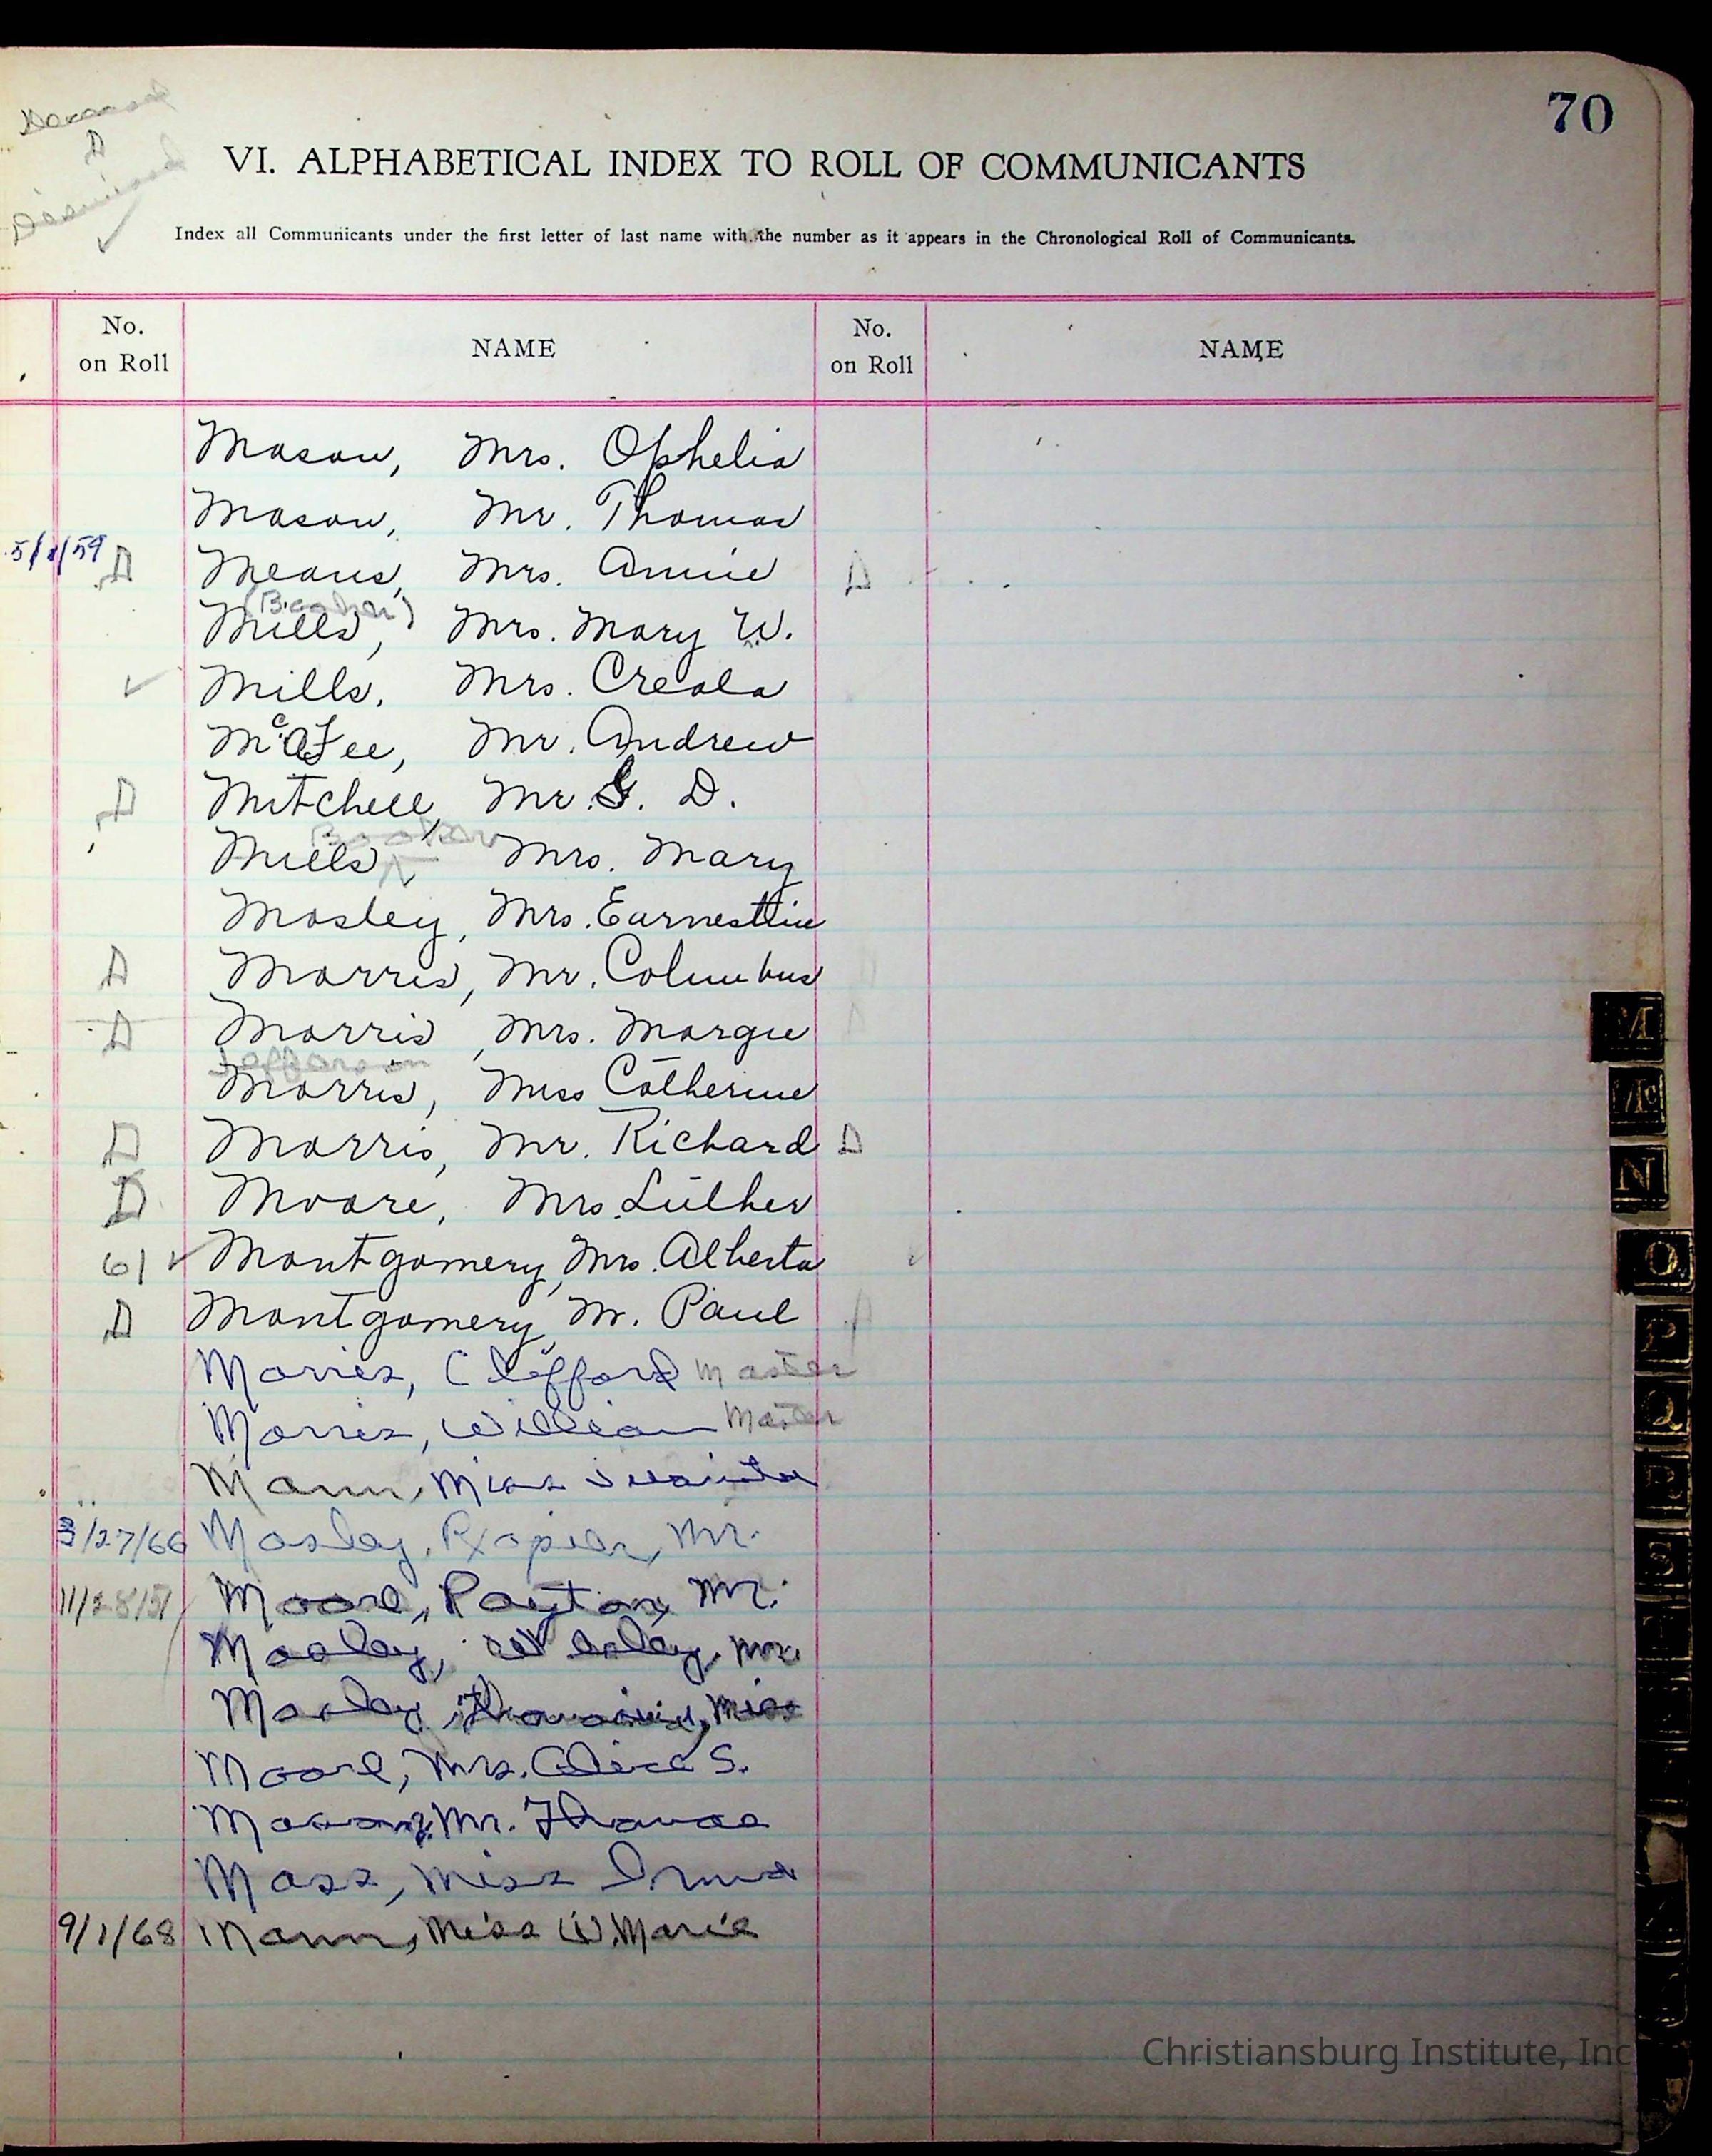 70
Deceased
D
Dismissed
✓
VI. ALPHABETICAL INDEX TO ROLL OF COMMUNICANTS
Index all Communicants under the first letter of last name with the number as it appears in the Chronological Roll of Communicants.
No. on Roll NAME No. on Roll NAME
Mason, Mrs. Ophelia
Mason, Mr. Thomas
5/1/59 D Means, Mrs. Annie D
(Booker)
Mills, Mrs. Mary W.
✓ Mills, Mrs. Creola
McAfee, Mr. Andrew
D Mitchell, Mr. G. D.
Booker
Mills, Mrs. Mary
Mosley, Mrs. Earnestine
D Morris, Mr. Columbus
D Morris, Mrs. Margie
Jefferson
Morris, Miss Catherine
D Morris, Mr. Richard D
D Moore, Mrs. Luther
61 ✓ Montgomery, Mrs. Alberta
D Montgomery, Mr. Paul
Morris, Clifford Master
Morris, William Master
Mann, Miss Juanita
3/27/66 Mosley, Mr.
11/28/51 Moore, Payton, Mr.
Mosley, Wesley, Mr.
Mosley, Miss
Moore, Mrs. Alice S.
Mr. Thomas
Moss, Miss Irma
9/1/68 Mann, Miss W. Marie
M
Mc
N
O
P
Q
R
S
Christiansburg Institute, Inc